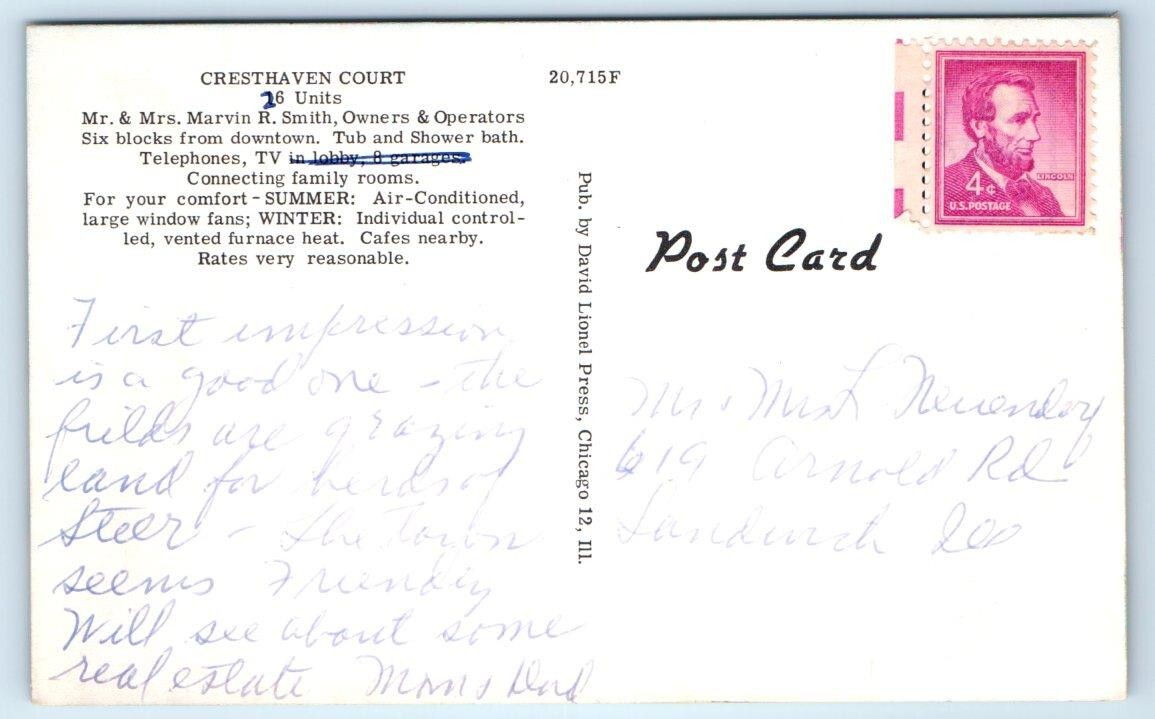 CRESTHAVEN COURT
26 Units
Mr. & Mrs. Marvin R. Smith, Owners & Operators
Six blocks from downtown. Tub and Shower bath.
Telephones, TV in lobby, 8 garages.
Connecting family rooms.
For your comfort - SUMMER: Air-Conditioned,
large window fans; WINTER: Individual control-
led, vented furnace heat. Cafes nearby.
Rates very reasonable.
First impression
is a good one - the
fields are grazing
land for herds of
Steer - the town
seems Friendly
Will see about some
real estate Mom & Dad
20,715F
Pub. by David Lionel Press, Chicago 12, Ill.
LINCOLN
4¢
U.S. POSTAGE
Post Card
Mr & Mrs L
619 Arnold Rd
Sandwich Ill